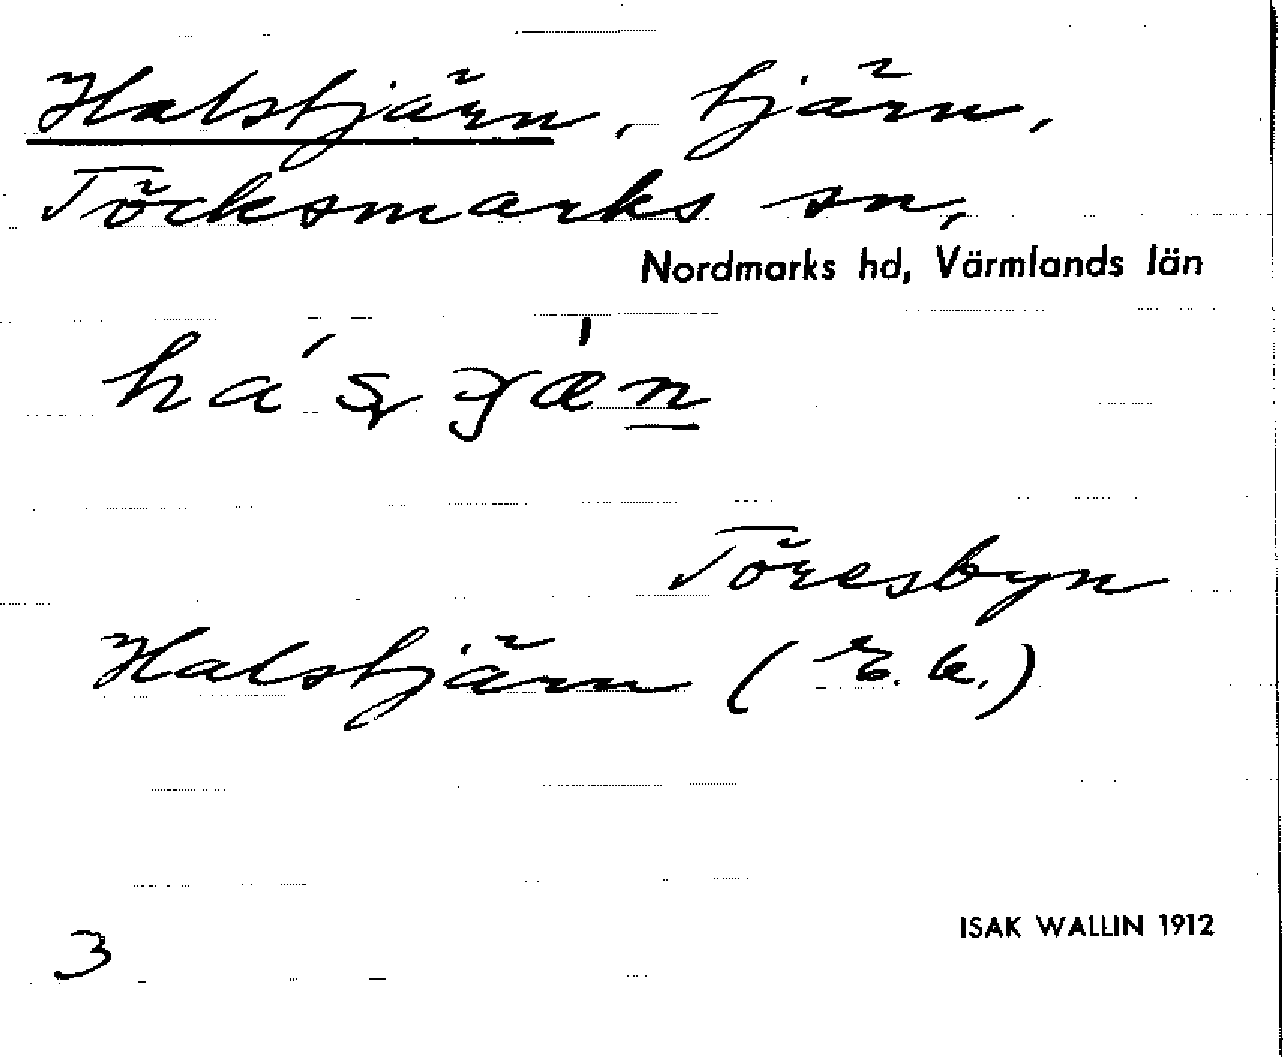 Halstjärn, tjärn,
Töcksmarks sn,
Nordmarks hd, Värmlands län
Töresbyn
Halstjärn (E. k.)
ISAK WALLIN 1912
3